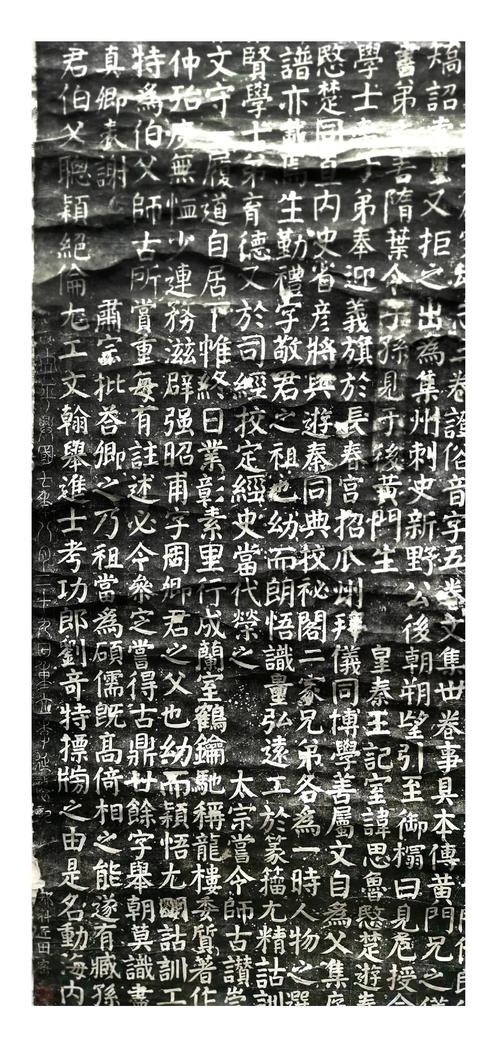 志三卷證俗音字五卷文集卅卷事具本傳黃門兄之儀
矯詔索璽又拒之出為集州刺史新野公後朝朔望引至御榻曰見危授命
書弟之善隋葉令子孫見于後黃門生皇秦王記室諱思魯愍楚遊秦
學士弟奉迎義旗於長春宮招瓜州拜儀同博學善屬文自為父集序
愍楚同直内史省彦將與遊秦同典校秘閣二家兄弟各為一時人物之選
譜亦載焉生勤禮字敬君之祖也幼而朗悟識量弘遠工於篆籀尤精詁訓
賢學士弟育德又於司經校定經史當代榮之太宗嘗令師古讃崇
文守一履道自居下帷終日業彰素里行成蘭室鶴鑰馳稱龍樓委質著作
仲殆庶無恤少連務滋辟强昭甫字周卿君之父也幼而穎悟尤明詁訓工
特為伯父師古所賞重每有註述必令參定嘗得古鼎廿餘字舉朝莫識盡
真卿表謝肅宗批荅卿之乃祖當為碩儒既高倚相之能遂有臧孫
君伯父聰穎絕倫尤工文翰舉進士考功郎劉奇特摽牓之由是名動海内